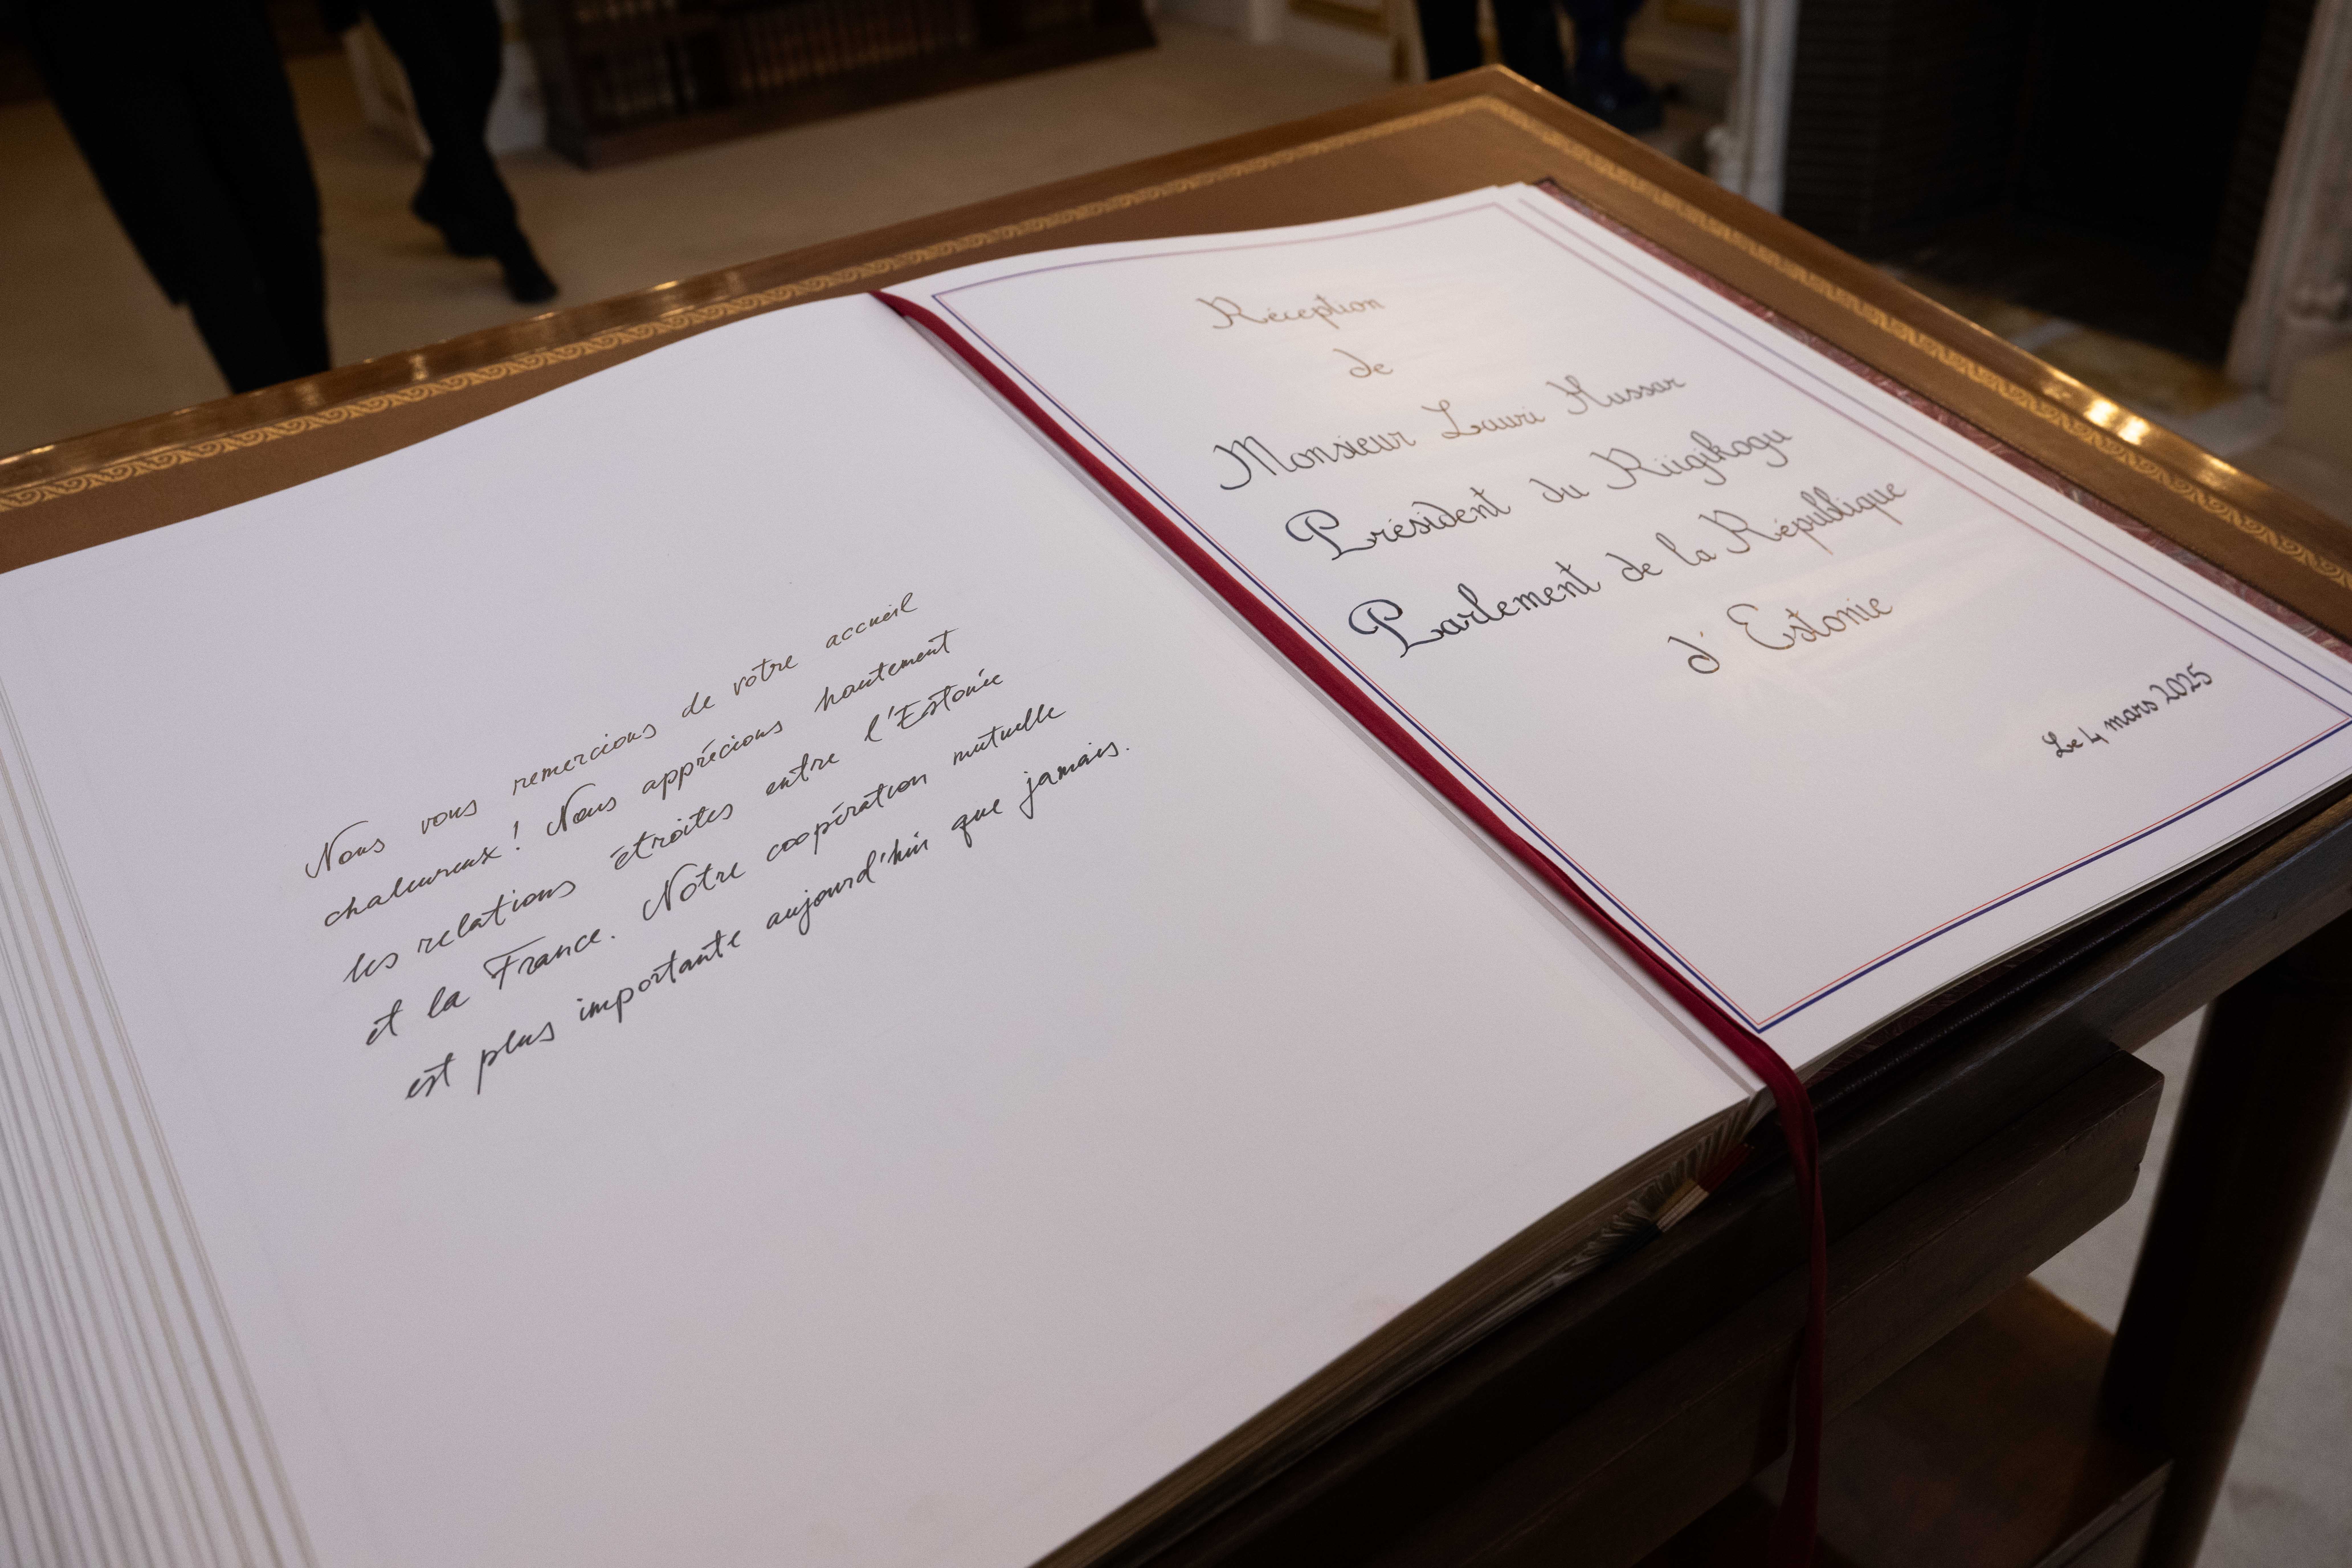 Nous vous remercions de votre accueil
chaleureux! Nous apprécions hautement
les relations étroites entre l'Estonie
et la France. Notre coopération mutuelle
est plus importante aujourd'hui que jamais.
Réception
de
Monsieur Lauri Hussar
Président du Riigikogu
Parlement de la République
d'Estonie
Le 4 mars 2025